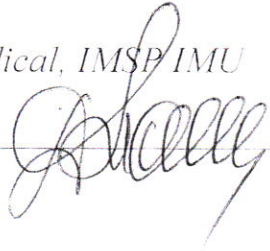 dical, IMSP IMU